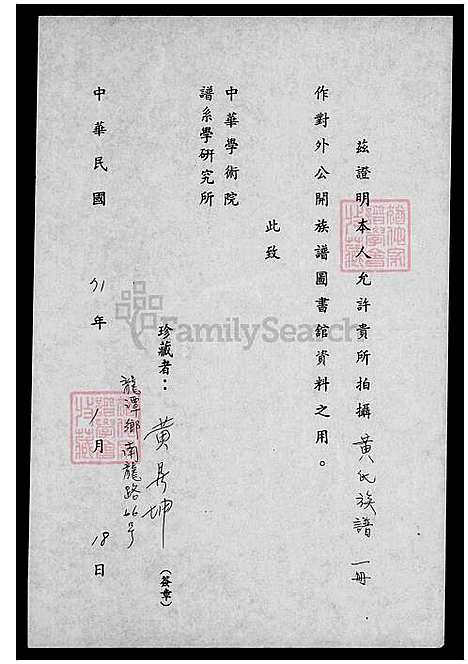 茲證明本人允許貴所拍攝黃氏族譜一冊
作對外公開族譜圖書舘資料之用。
此致
中華學術院
譜系學研究所
珍藏者：黃昇坤（簽章）
龍潭鄉南龍路66号
中華民國71年1月18日
FamilySearch